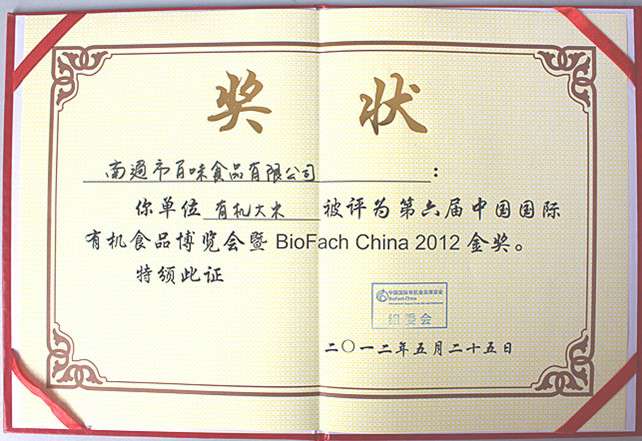 奖 状
南通市百味食品有限公司：
你单位 有机大米 被评为第六届中国国际
有机食品博览会暨 BioFach China 2012 金奖。
特颁此证
中国国际有机食品博览会
BioFach China
组委会
二〇一二年五月二十五日